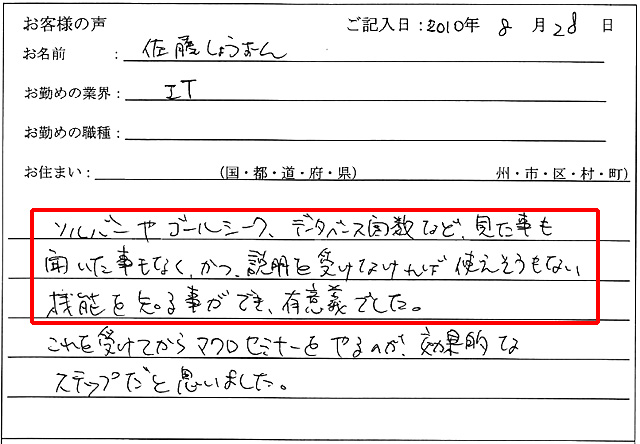 お客様の声 ご記入日:2010年 8月28日
お名前 : 佐藤しょうおん
お勤めの業界: IT
お勤めの職種:
お住まい: (国・都・道・府・県) 州・市・区・村・町)
ソルバーやゴールシーク、データベース関数など、見た事も
聞いた事もなく、かつ、説明を受けなければ使えそうもない
機能を知る事ができ、有意義でした。
これを受けてからマクロセミナーをやるのが、効果的な
ステップだと思いました。